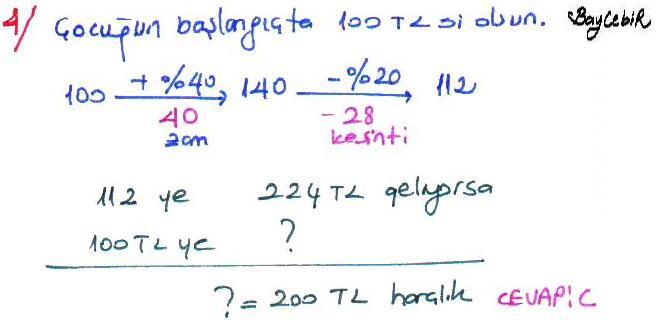 4/ Çocuğun başlangıçta 100 TL si olsun. BayCebiR
100 + %40 → 140 - %20 → 112
40 - 28
zam kesinti
112 ye 224 TL geliyorsa
100 TL ye ?
? = 200 TL harçlık CEVAP: C